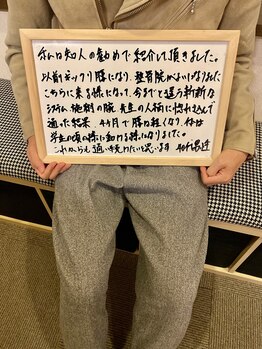 私は知人の勧めで紹介して頂きました。
以前ギックリ腰になり、整骨院がよいになりました
こちらに来る様になって、今までと違う斬新な
システム 施術の腕 先生の人柄に惚れ込んで
通った結果 4ヶ月で腰は軽くなり、今は
学生の頃の様に動ける様になりました。
これからも通い続けたいと思います 40代男性